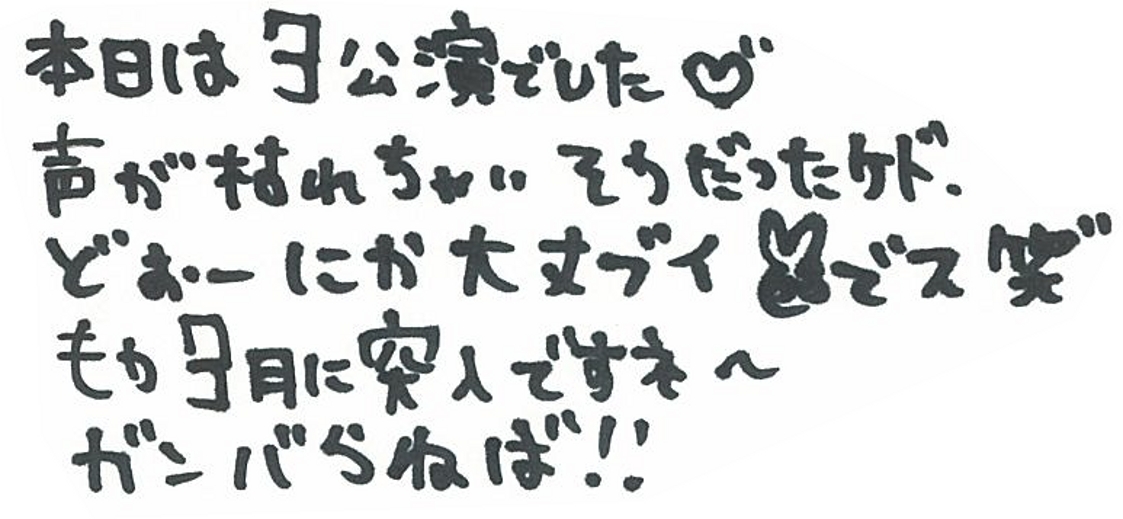 本日は3公演でした♡"
声が枯れちゃいそうだったケド.
どぉーにか大丈ブイ✌でス笑"
もう3月に突入ですネ〜
ガンバらねば!!